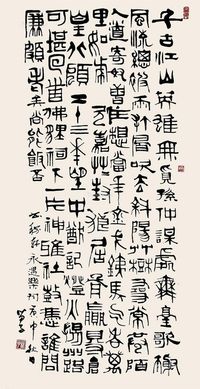 千古江山英雄無覓孫仲謀處舞臺歌榭
風流總被雨打風吹去斜陽草樹尋常巷陌
人道寄奴曾住想當年金戈鐵馬氣吞萬
里如虎元嘉草草封狼居胥贏得倉
皇北顧四十三年望中猶記烽火揚州路
可堪回首佛狸祠下一片神鴉社鼓憑誰問
廉頗老矣尚能飯否
永遇樂詞